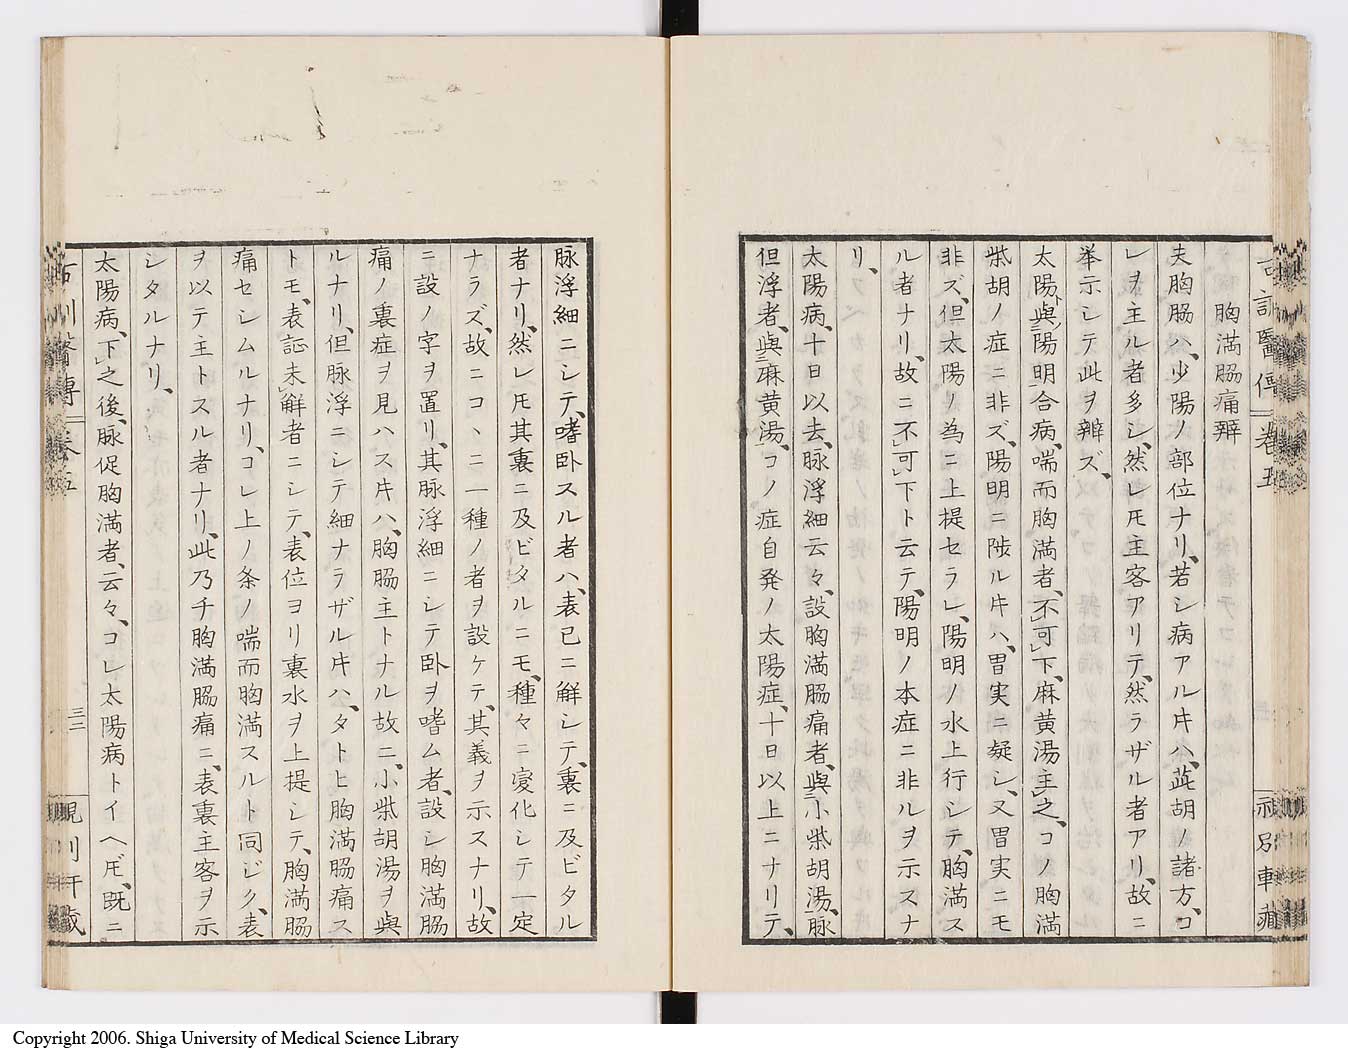 胸満脇痛辨
夫胸脇ハ、少陽ノ部位ナリ、若シ病アル片ハ、茈胡ノ諸方、コ
レヲ主ル者多シ、然レ𪜈主客アリテ、然ラザル者アリ、故ニ
举示シテ此ヲ辨ズ、
太陽與陽明合病、喘而胸満者、不可下、麻黄湯主之、コノ胸満
柴胡ノ症ニ非ズ、陽明ニ陟ル片ハ、胃実ニ凝シ、又胃実ニモ
非ズ、但太陽ノ為ニ上提セラレ、陽明ノ水上行シテ、胸満ス
ル者ナリ、故ニ不可下ト云テ、陽明ノ本症ニ非ルヲ示スナ
リ、
太陽病、十日以去、脉浮細云々、設胸満脇痛者、與小柴胡湯、脉
但浮者、與麻黄湯、コノ症自発ノ太陽症、十日以上ニナリテ、
脉浮細ニシテ、嗜卧スル者ハ、表已ニ解シテ、裏ニ及ビタル
者ナリ、然レ𪜈其裏ニ及ビタルニモ、種々ニ変化シテ一定
ナラズ、故ニコヽニ一種ノ者ヲ設ケテ、其義ヲ示スナリ、故
ニ設ノ字ヲ置リ、其脉浮細ニシテ卧ヲ嗜ム者、設シ胸満脇
痛ノ裏症ヲ見ハス片ハ、胸脇主トナル故ニ、小柴胡湯ヲ與
ルナリ、但脉浮ニシテ細ナラザル片ハ、タトヒ胸満脇痛ス
トモ、表証未解者ニシテ、表位ヨリ裏水ヲ上提シテ、胸満脇
痛セシムルナリ、コレ上ノ条ノ喘而胸満スルト同ジク、表
ヲ以テ主トスル者ナリ、此乃チ胸満脇痛ニ、表裏主客ヲ示
シタルナリ、
太陽病、下之後、脉促胸満者、云々、コレ太陽病トイヘ𪜈、既ニ
三二